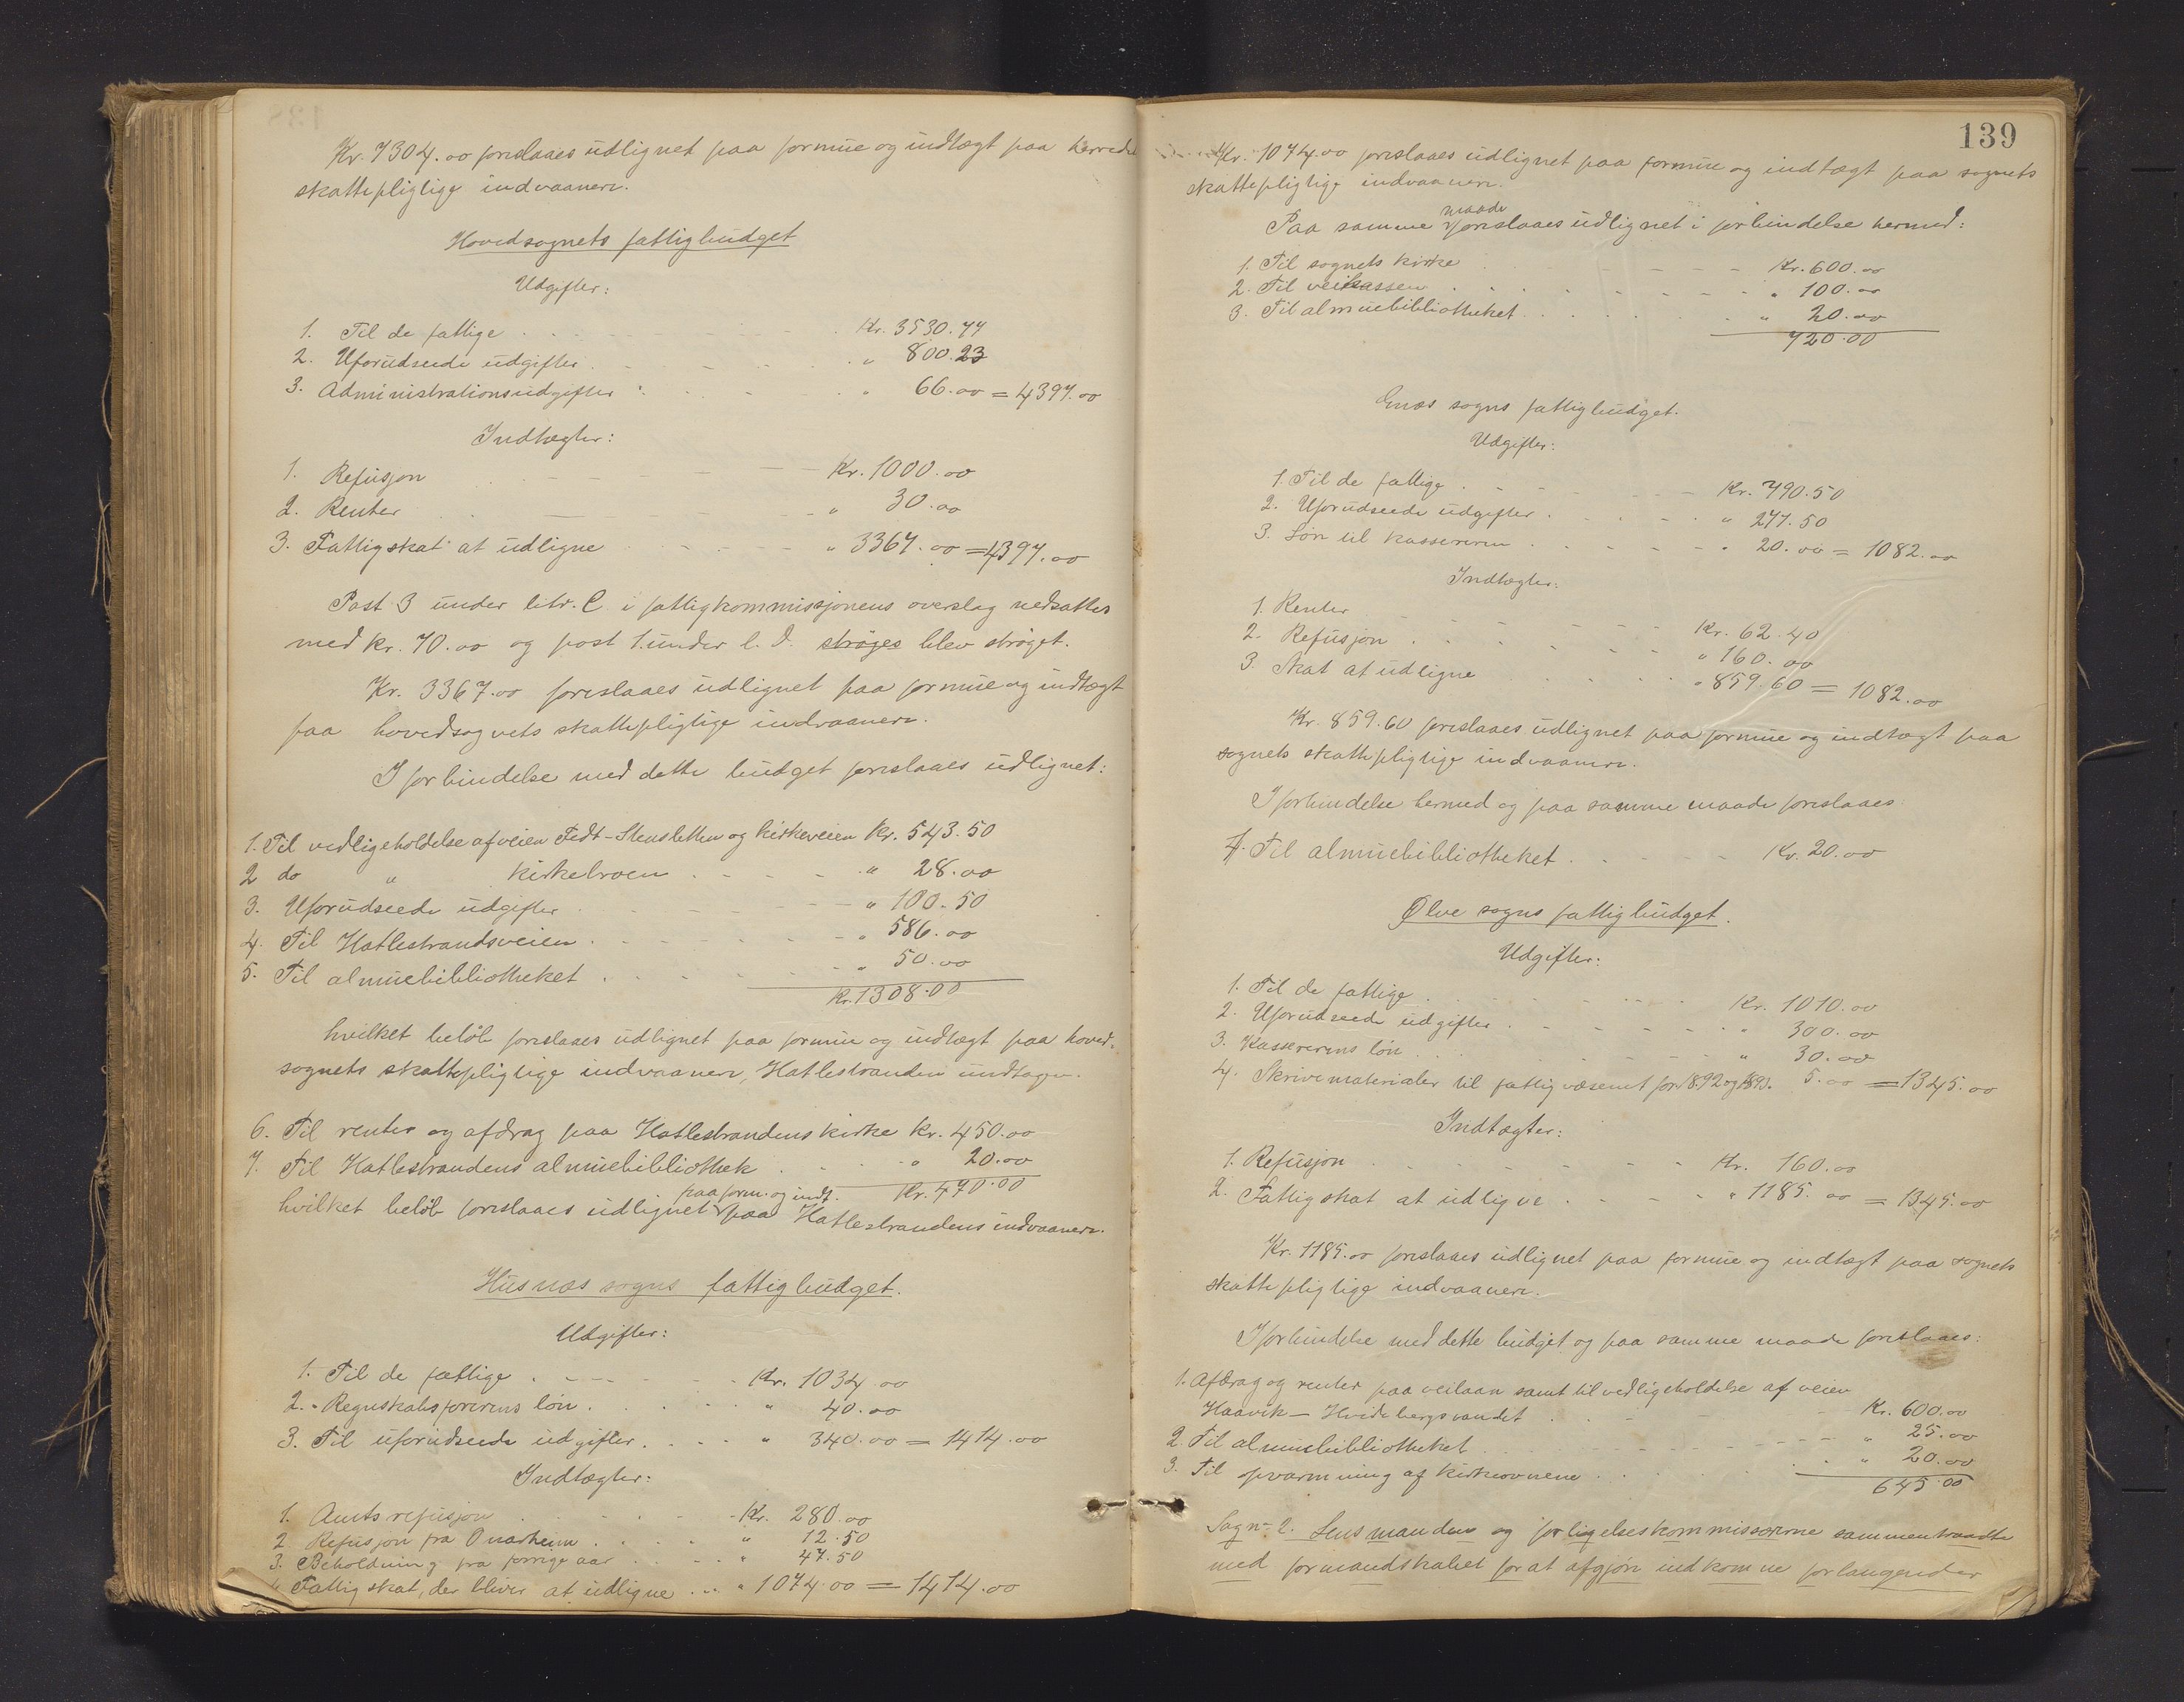 Kr. 7304.00 foreslaaes udlignet paa formue og indtægt paa herredets
skattepligtige indvaanere.
Hovedsognets fattigbudget
Udgifter:
1. Til de fattige . . . Kr. 3530.77
2. Uforudseede udgifter . . . " 800.23
3. Administrationsudgifter . . . " 66.00 = 4397.00
Indtægter:
1. Refusjon . . . Kr. 1000.00
2. Renter . . . " 30.00
3. Fattigskat at udligne . . . " 3367.00 = 4397.00
Post 3 under litr. C i fattigkommissjonens overslag nedsattes
med kr. 70.00 og post 1. under l. D. strøges blev strøget.
Kr. 3367.00 foreslaaes udlignet paa formue og indtægt
paa hovedsognets skattepligtige indvaanere.
I forbindelse med dette budget foreslaaes udlignet:
1. Til vedligeholdelse af veien Tedt-Stensletten og kirkeveien Kr. 543.50
2 do " kirkebroen . . . " 28.00
3. Uforudseede udgifter . . . " 100.50
4. Til Hatlestrandsveien . . . " 586.00
5. Til almuebibliotheket . . . " 50.00
Kr. 1308.00
hvilket beløb foreslaaes udlignet paa formue og indtægt paa hoved-
sognets skattepligtige indvaanere, Hatlestranden undtagen.
6. Til renter og afdrag paa Hatlestrandens kirke Kr. 450.00
7. Til Hatlestrandens almuebibliothek . . . " 20.00
Kr. 470.00
hvilket beløb foreslaaes udlignet paa form. og indt. paa Hatlestrandens indvaanere.
Husnæs sogns fattigbudget.
Udgifter:
1. Til de fattige . . . Kr. 1034.00
2. Regnskabsførerens løn . . . " 40.00
3. Til uforudseede udgifter . . . " 340.00 = 1414.00
Indtægter:
1. Amtsrefusjon . . . Kr. 280.00
2 Refusjon fra Onarheim . . . " 12.50
3. Beholdning fra forrige aar . . . " 47.50
Fattigskat, der bliver at udligne . . . " 1074.00 = 1414.00
139
Kr. 1074.00 foreslaaes udlignet paa formue og indtægt paa sognets
skattepligtige indvaanere.
Paa samme maade foreslaaes udlignet i forbindelse hermed:
1. Til sognets kirke . . . Kr. 600.00
2. Til veikassen . . . " 100.00
3. Til almuebibliotheket . . . " 20.00
720.00
Enæs sogns fattigbudget.
Udgifter:
1. Til de fattige . . . Kr. 790.50
2. Uforudseede udgifter . . . " 271.50
3. Løn til kassereren . . . " 20.00 = 1082.00
Indtægter:
1. Renter . . . Kr. 62.40
2. Refusjon . . . " 160.00
3. Skat at udligne . . . " 859.60 = 1082.00
Kr. 859.60 foreslaaes udlignet paa formue og indtægt paa
sognets skattepligtige indvaanere.
I forbindelse hermed og paa samme maade foreslaaes:
1. Til almuebibliotheket . . . Kr. 20.00
Ølve sogns fattigbudget.
Udgifter:
1. Til de fattige . . . Kr. 1010.00
2. Uforudseede udgifter . . . " 300.00
3. Kassererens løn . . . " 30.00
4. Skrivematerialer til fattigvæsenet for 1892 og 1893. 5.00 = 1345.00
Indtægter:
1. Refusjon . . . Kr. 160.00
2. Fattigskat at udligne . . . " 1185.00 = 1345.00
Kr. 1185.00 foreslaaes udlignet paa formue og indtægt paa sognets
skattepligtige indvaanere.
I forbindelse med dette budget og paa samme maade foreslaaes:
1. Afdrag og renter paa veilaan samt til vedligeholdelse af veien
Haavik – Hvidebergsvandet . . . Kr. 600.00
2. Til almuebibliotheket . . . " 25.00
3. Til opvarmning af kirkeovnene . . . " 20.00
645.00
Sagn- 2. Lensmanden og forligelseskommissærerne sammentraadte
med formandskabet for at afgjøre indkomne forlangender